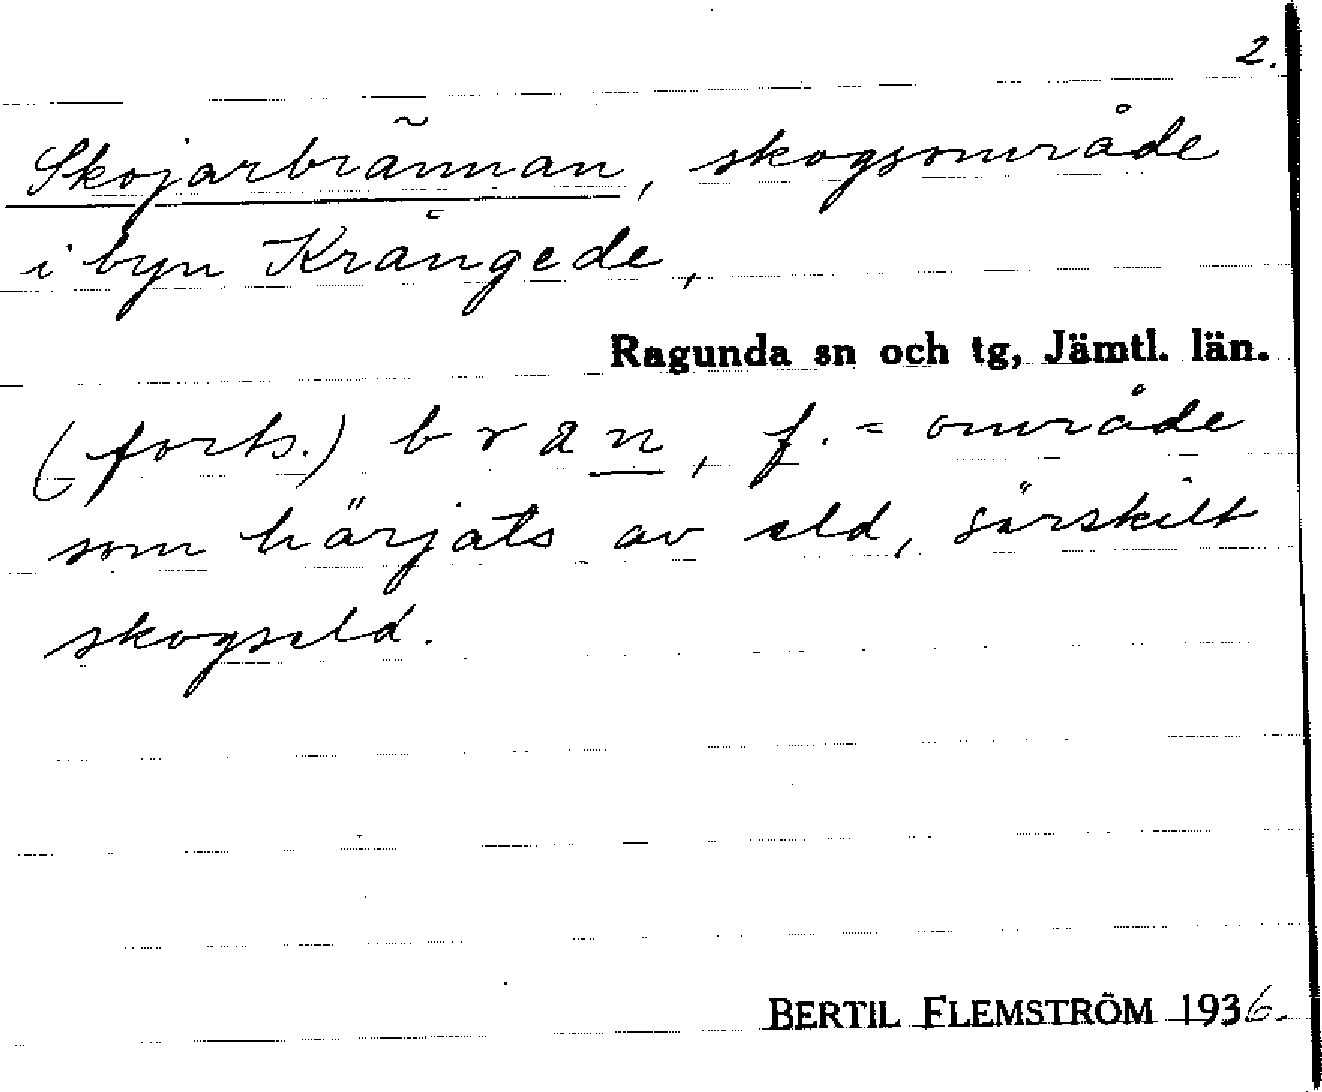 2.
Skojarbrännan, skogsområde
i byn Krångede,
Ragunda sn och tg, Jämtl. län.
(forts.) bran, f. = område
som härjats av eld, särskilt
skogseld.
BERTIL FLEMSTRÖM 1936.